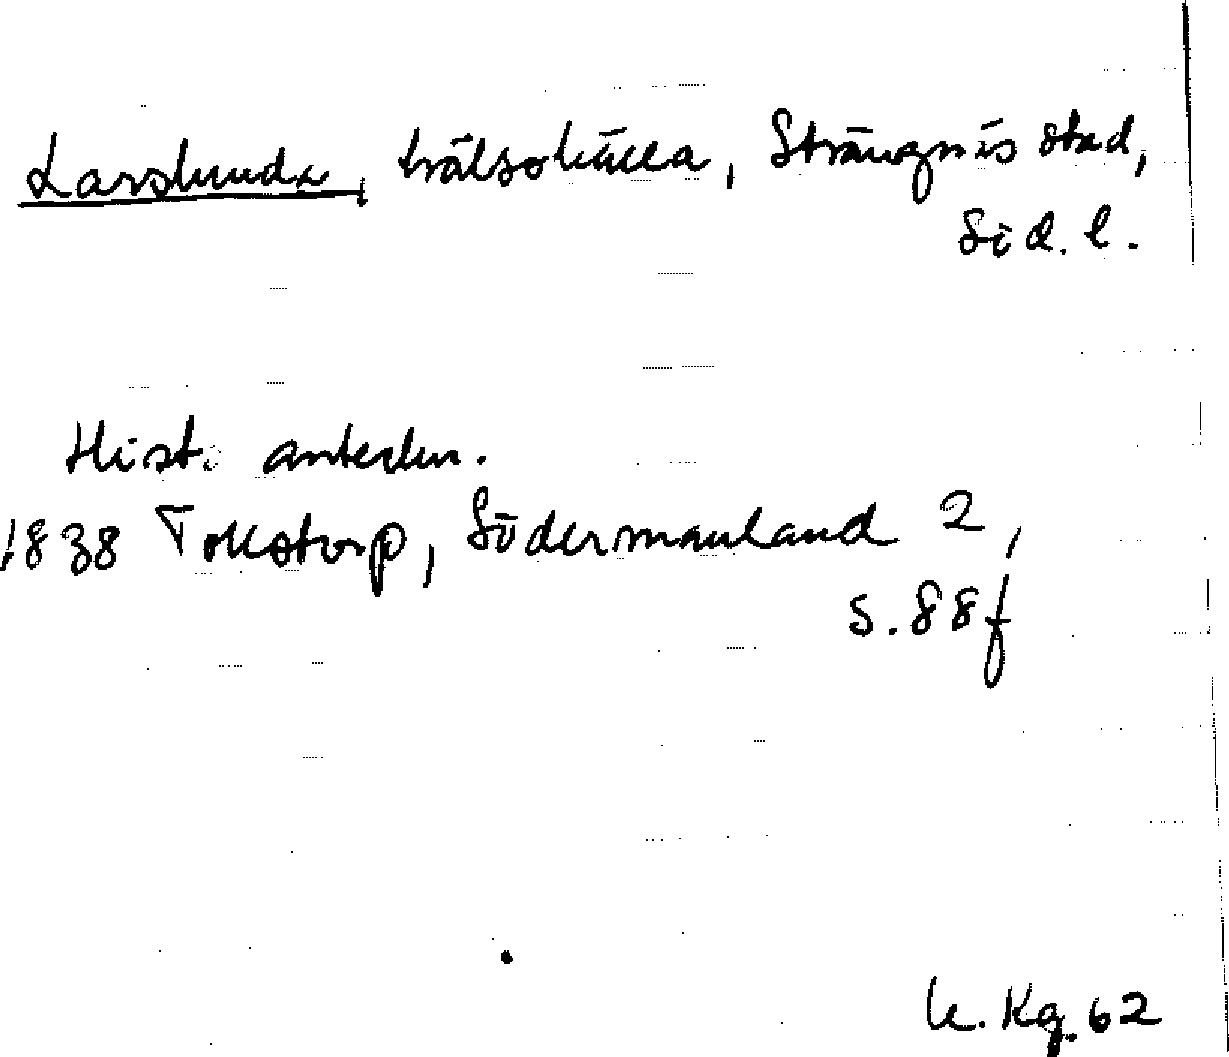 Larslunda, hälsokälla, Strängnäs stad,
Söd. l.
Hist. anteckn.
1838 Tollstorp, Södermanland 2,
s. 88 f
K. Kg. 62